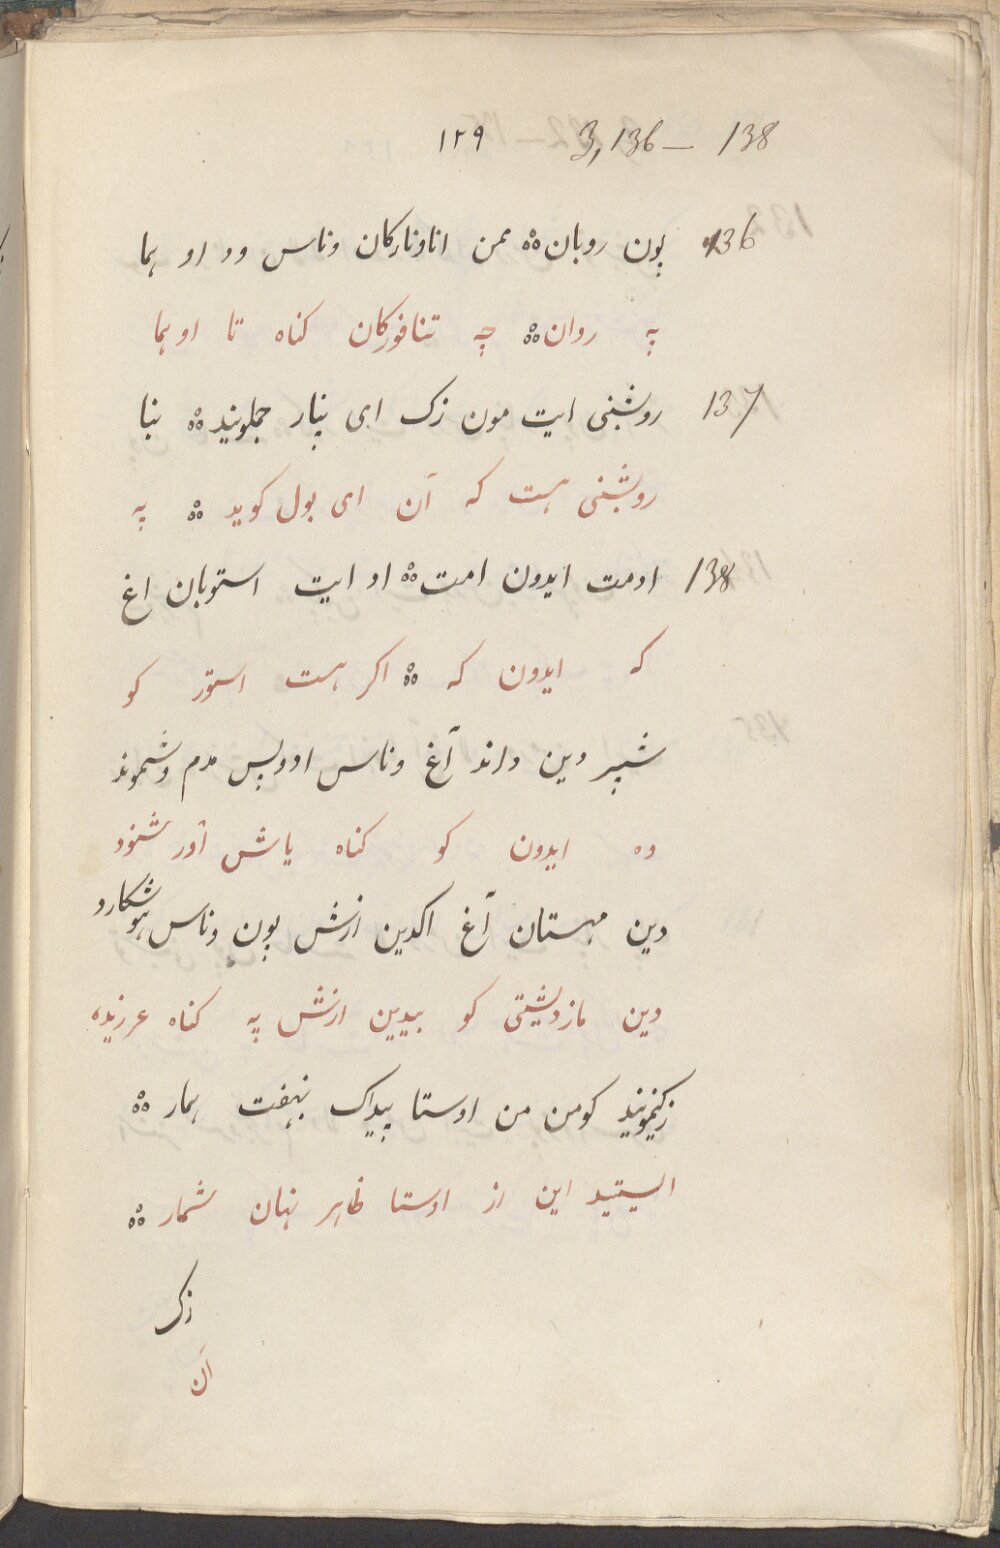 ۱۲۹ 3,136 — 138
136 پون روبان ممن اناونارکان وناس ود او هما
په روان چه تنافورکان کناه تا او هما
137 روشنی ایت مون زک ای پنار جملونید بنا
روشنی هست که آن ای بول کوید په
138 اومت ایدون امت او ایت استوبان اغ
که ایدون که اکر هست استور کو
شپیر دین داند آغ وناس اوویس مدم وشموند
وه ایدون کو کناه یاش آور شنود
دین مهستان آغ اکدین ازش پون وناس هوشکارد
دین مازدیشتی کو بیدین ازش په کناه عرزیده
زکیمونید کومن من اوستا پیداک نهفت همار
ایستید این از اوستا ظاهر نهان شمار
زک
آن